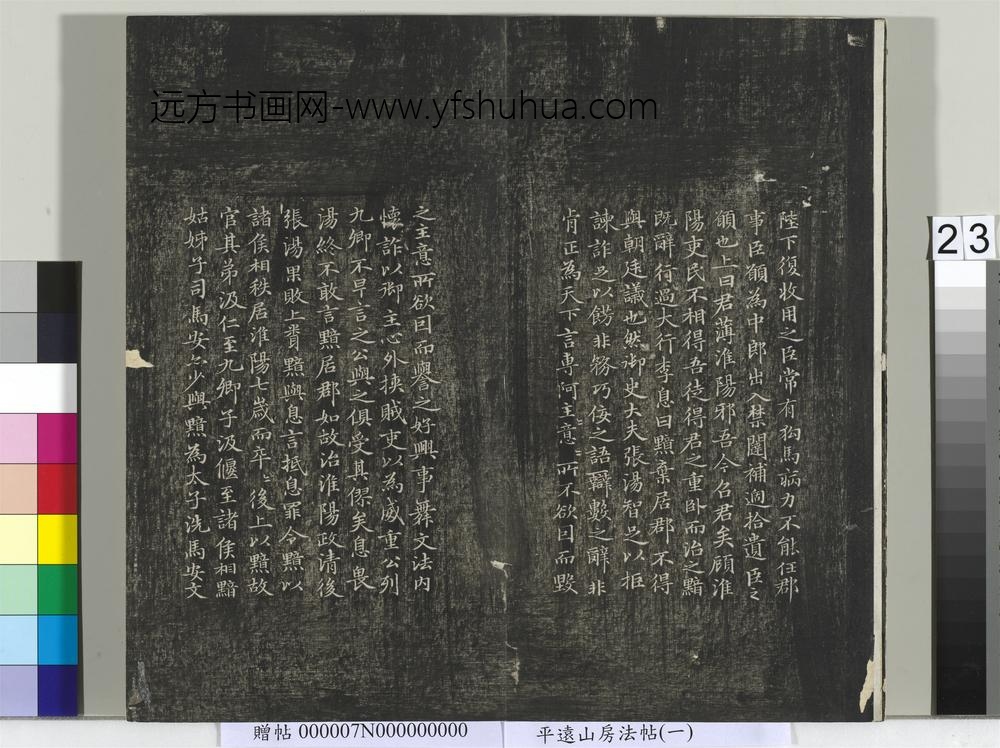 远方书画网-www.yfshuhua.com
陛下復收用之臣常有狗馬病力不能任郡
事臣願為中郎出入禁闥補過拾遺臣之
願也上曰君薄淮陽邪吾今召君矣顧淮
陽吏民不相得吾徒得君之重卧而治之黯
既辭行過大行李息曰黯棄居郡不得
與朝廷議也然御史大夫張湯智足以拒
諫詐足以飾非務巧佞之語辯數之辭非
肯正為天下言專阿主意〻所不欲因而毀
之主意所欲因而譽之好興事舞文法內
懷詐以御主心外挾賊吏以為威重公列
九卿不早言之公與之俱受其僇矣息畏
湯終不敢言黯居郡如故治淮陽政清後
張湯果敗上聞黯與息言抵息罪令黯以
諸侯相秩居淮陽七歲而卒〻後上以黯故
官其弟汲仁至九卿子汲偃至諸侯相黯
姑姊子司馬安亦少與黯為太子洗馬安文
23
贈帖 000007N000000000
平遠山房法帖(一)